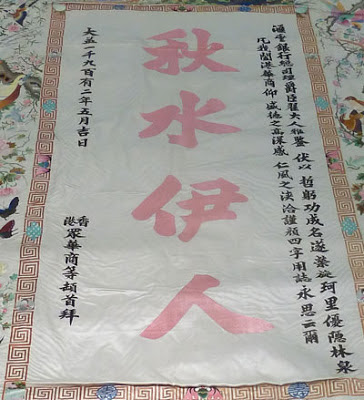 滙豐銀行總司理爵臣夫人雅鑒 伏以 哲躬功成名遂榮旋珂里優隱林泉
凡我闔港華商仰 盛德之高深感 仁風之浹洽謹頌四字用誌永思云爾
秋水伊人
香港眾華商等頓首拜
大英一千九百有二年五月吉日